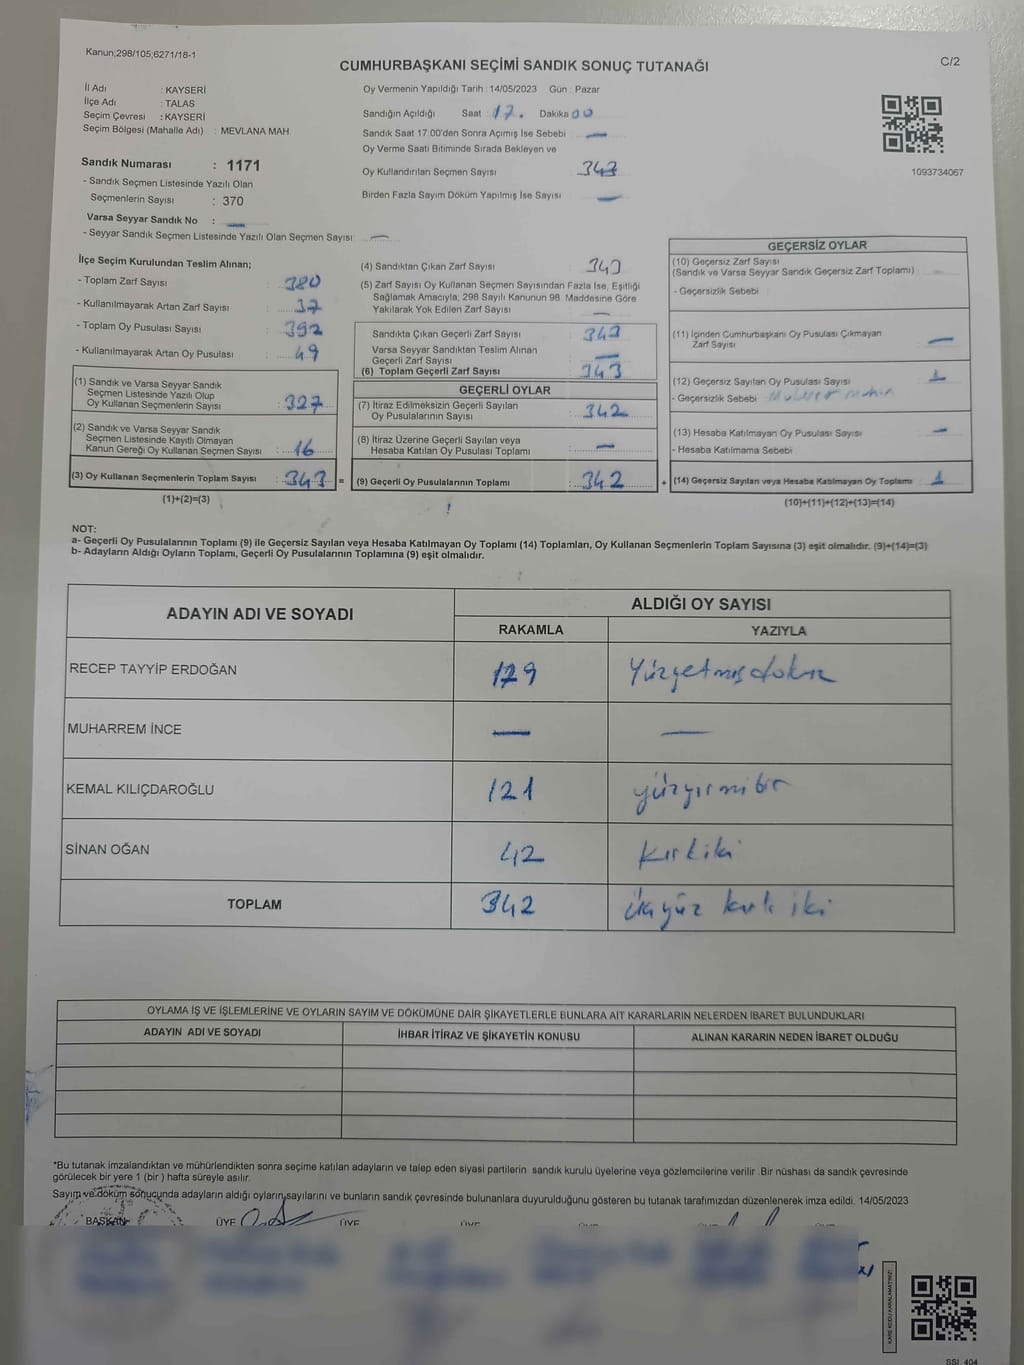 Kanun;298/105;6271/18-1
CUMHURBAŞKANI SEÇİMİ SANDIK SONUÇ TUTANAĞI
C/2
İl Adı : KAYSERİ
İlçe Adı : TALAS
Seçim Çevresi : KAYSERİ
Seçim Bölgesi (Mahalle Adı) : MEVLANA MAH.
Sandık Numarası : 1171
- Sandık Seçmen Listesinde Yazılı Olan
Seçmenlerin Sayısı : 370
Varsa Seyyar Sandık No : —
- Seyyar Sandık Seçmen Listesinde Yazılı Olan Seçmen Sayısı : —
Oy Vermenin Yapıldığı Tarih : 14/05/2023 Gün : Pazar
Sandığın Açıldığı Saat : 17. Dakika 00
Sandık Saat 17.00'den Sonra Açımış İse Sebebi —
Oy Verme Saati Bitiminde Sırada Bekleyen ve
Oy Kullandırılan Seçmen Sayısı 343
Birden Fazla Sayım Döküm Yapılmış İse Sayısı —
1093734067
İlçe Seçim Kurulundan Teslim Alınan;
- Toplam Zarf Sayısı : 380
- Kullanılmayarak Artan Zarf Sayısı : 37
- Toplam Oy Pusulası Sayısı : 392
- Kullanılmayarak Artan Oy Pusulası : 49
(1) Sandık ve Varsa Seyyar Sandık
Seçmen Listesinde Yazılı Olup
Oy Kullanan Seçmenlerin Sayısı : 327
(2) Sandık ve Varsa Seyyar Sandık
Seçmen Listesinde Kayıtlı Olmayan
Kanun Gereği Oy Kullanan Seçmen Sayısı : 16
(3) Oy Kullanan Seçmenlerin Toplam Sayısı : 343 =
(1)+(2)=(3)
(4) Sandıktan Çıkan Zarf Sayısı 343
(5) Zarf Sayısı Oy Kullanan Seçmen Sayısından Fazla İse, Eşitliği
Sağlamak Amacıyla; 298 Sayılı Kanunun 98. Maddesine Göre
Yakılarak Yok Edilen Zarf Sayısı —
Sandıkta Çıkan Geçerli Zarf Sayısı 343
Varsa Seyyar Sandıktan Teslim Alınan
Geçerli Zarf Sayısı —
(6) Toplam Geçerli Zarf Sayısı 343
GEÇERLİ OYLAR
(7) İtiraz Edilmeksizin Geçerli Sayılan
Oy Pusulalarının Sayısı : 342
(8) İtiraz Üzerine Geçerli Sayılan veya
Hesaba Katılan Oy Pusulası Toplamı : —
(9) Geçerli Oy Pusulalarının Toplamı : 342 +
GEÇERSİZ OYLAR
(10) Geçersiz Zarf Sayısı
(Sandık ve Varsa Seyyar Sandık Geçersiz Zarf Toplamı) —
- Geçersizlik Sebebi
(11) İçinden Cumhurbaşkanı Oy Pusulası Çıkmayan
Zarf Sayısı —
(12) Geçersiz Sayılan Oy Pusulası Sayısı 1
- Geçersizlik Sebebi
(13) Hesaba Katılmayan Oy Pusulası Sayısı —
- Hesaba Katılmama Sebebi
(14) Geçersiz Sayılan veya Hesaba Katılmayan Oy Toplamı : 1
(10)+(11)+(12)+(13)=(14)
NOT:
a- Geçerli Oy Pusulalarının Toplamı (9) ile Geçersiz Sayılan veya Hesaba Katılmayan Oy Toplamı (14) Toplamları, Oy Kullanan Seçmenlerin Toplam Sayısına (3) eşit olmalıdır. (9)+(14)=(3)
b- Adayların Aldığı Oyların Toplamı, Geçerli Oy Pusulalarının Toplamına (9) eşit olmalıdır.
ADAYIN ADI VE SOYADI
ALDIĞI OY SAYISI
RAKAMLA YAZIYLA
RECEP TAYYİP ERDOĞAN 179 Yüzyetmişdokuz
MUHARREM İNCE — —
KEMAL KILIÇDAROĞLU 121 yüzyirmibir
SİNAN OĞAN 42 Kırkiki
TOPLAM 342 üçyüz kırk iki
OYLAMA İŞ VE İŞLEMLERİNE VE OYLARIN SAYIM VE DÖKÜMÜNE DAİR ŞİKAYETLERLE BUNLARA AİT KARARLARIN NELERDEN İBARET BULUNDUKLARI
ADAYIN ADI VE SOYADI İHBAR İTİRAZ VE ŞİKAYETİN KONUSU ALINAN KARARIN NEDEN İBARET OLDUĞU
*Bu tutanak imzalandıktan ve mühürlendikten sonra seçime katılan adayların ve talep eden siyasi partilerin sandık kurulu üyelerine veya gözlemcilerine verilir .Bir nüshası da sandık çevresinde
görülecek bir yere 1 (bir ) hafta süreyle asılır.
Sayım ve döküm sonucunda adayların aldığı oyların sayılarını ve bunların sandık çevresinde bulunanlara duyurulduğunu gösteren bu tutanak tarafımızdan düzenlenerek imza edildi. 14/05/2023
BAŞKAN ÜYE ÜYE ÜYE
KARE KODU KARALAMAYINIZ!
SSI: 404